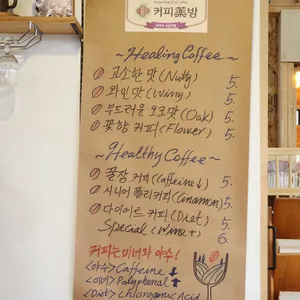 커피藥방
~Healing Coffee~
고소한 맛(Nutty) 5.
와인 맛(Winy) 5.
부드러운 오크맛(Oak) 5.
꽃향 커피(Flower) 5.
~Healthy Coffee~
꿀잠 커피(Caffeine↓) 5.
시니어 플러커피(Cinnamon) 5.
다이어트 커피(Diet) 5.
Special (Wine+) 6.
커피는 미녀와 야수!
<야수> Caffeine ↓
<미녀> Polyphenol ↑
<Diet> Chlorogenic Acid